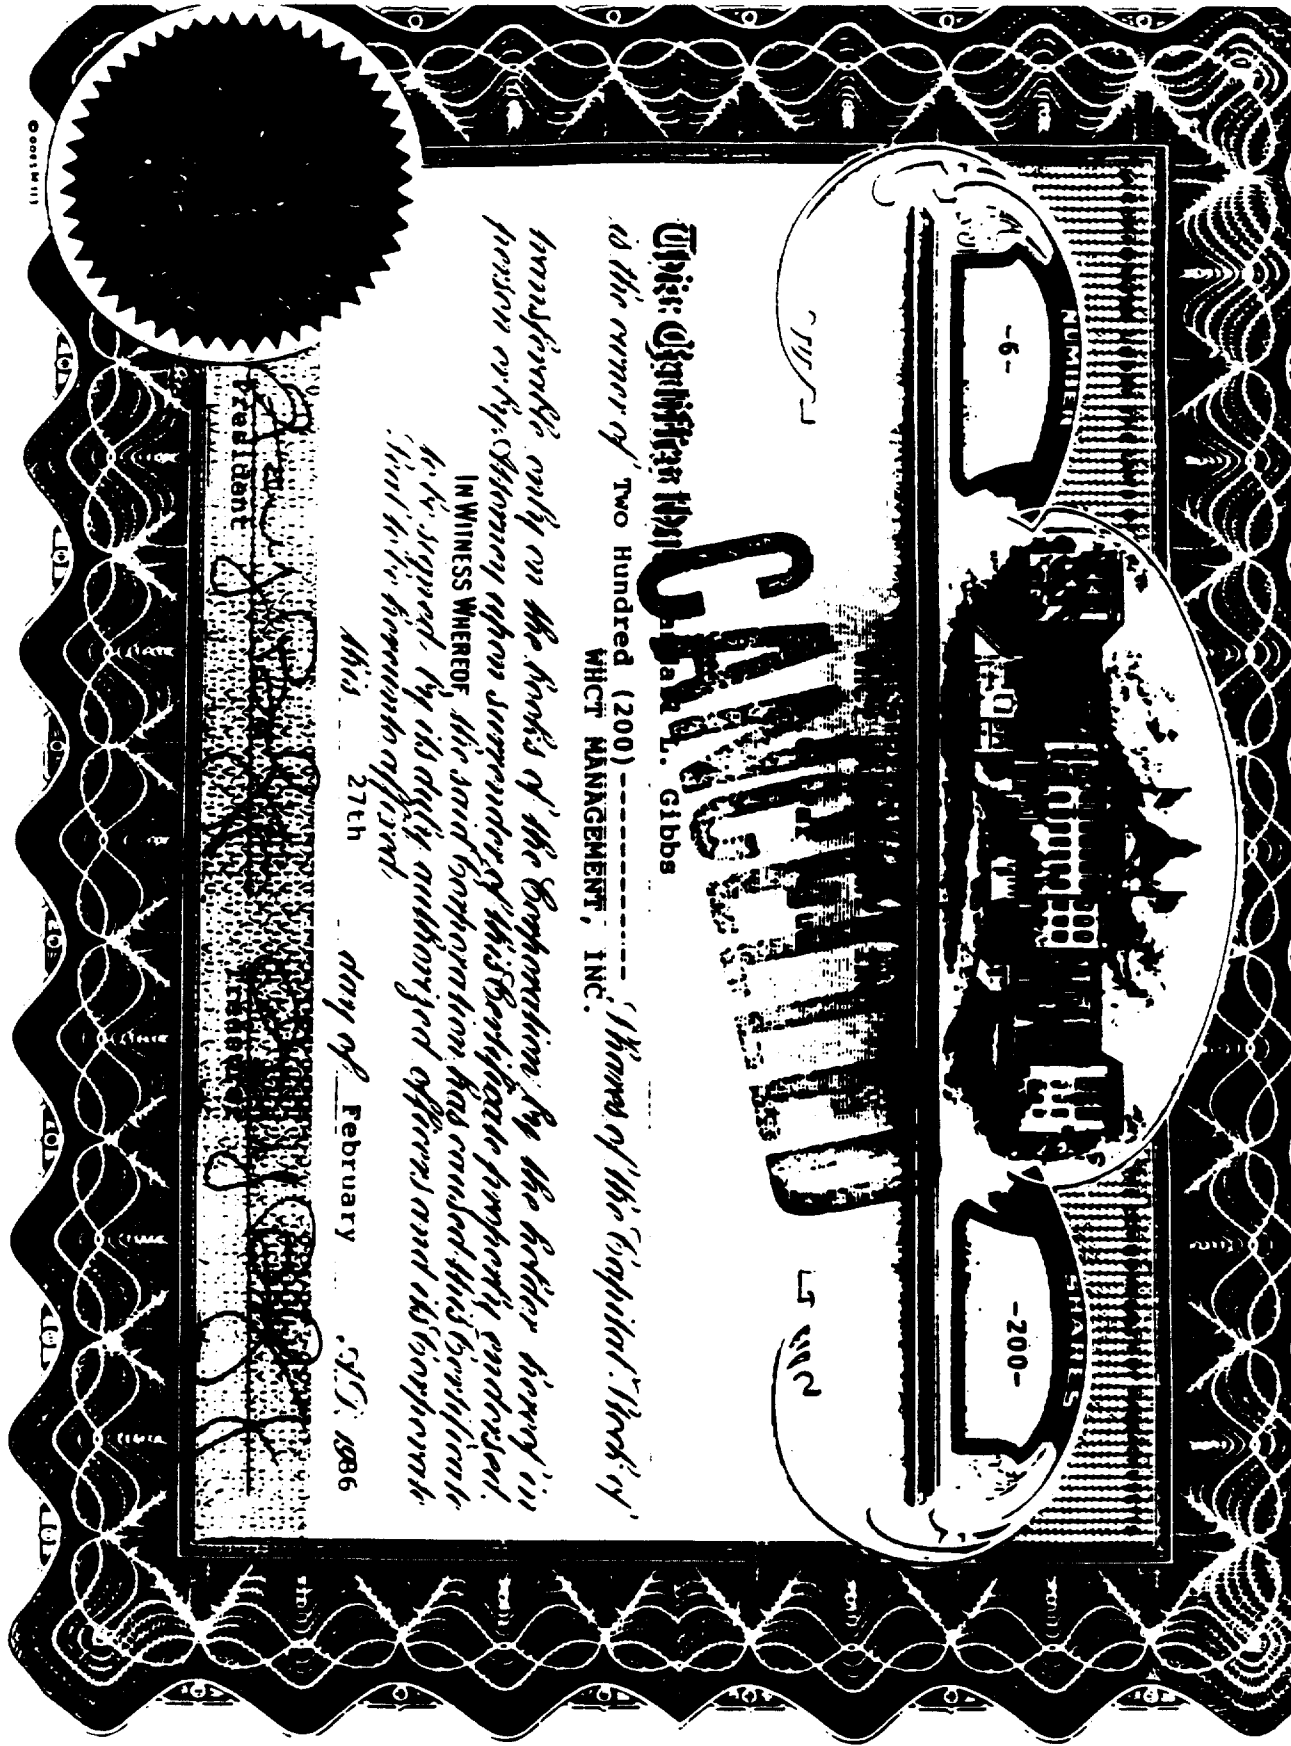 NUMBER
-6-
SHARES
-200-
CANCELLED
This Certifies that L. Gibbs
is the owner of Two Hundred (200)---------- Shares of the Capital Stock of
WHCT MANAGEMENT, INC.
transferable only on the books of the Corporation by the holder hereof in
person or by Attorney upon surrender of this Certificate properly endorsed.
IN WITNESS WHEREOF, the said Corporation has caused this Certificate
to be signed by its duly authorized officers and its Corporate
Seal to be hereunto affixed
this 27th day of February A.D. 1986
President